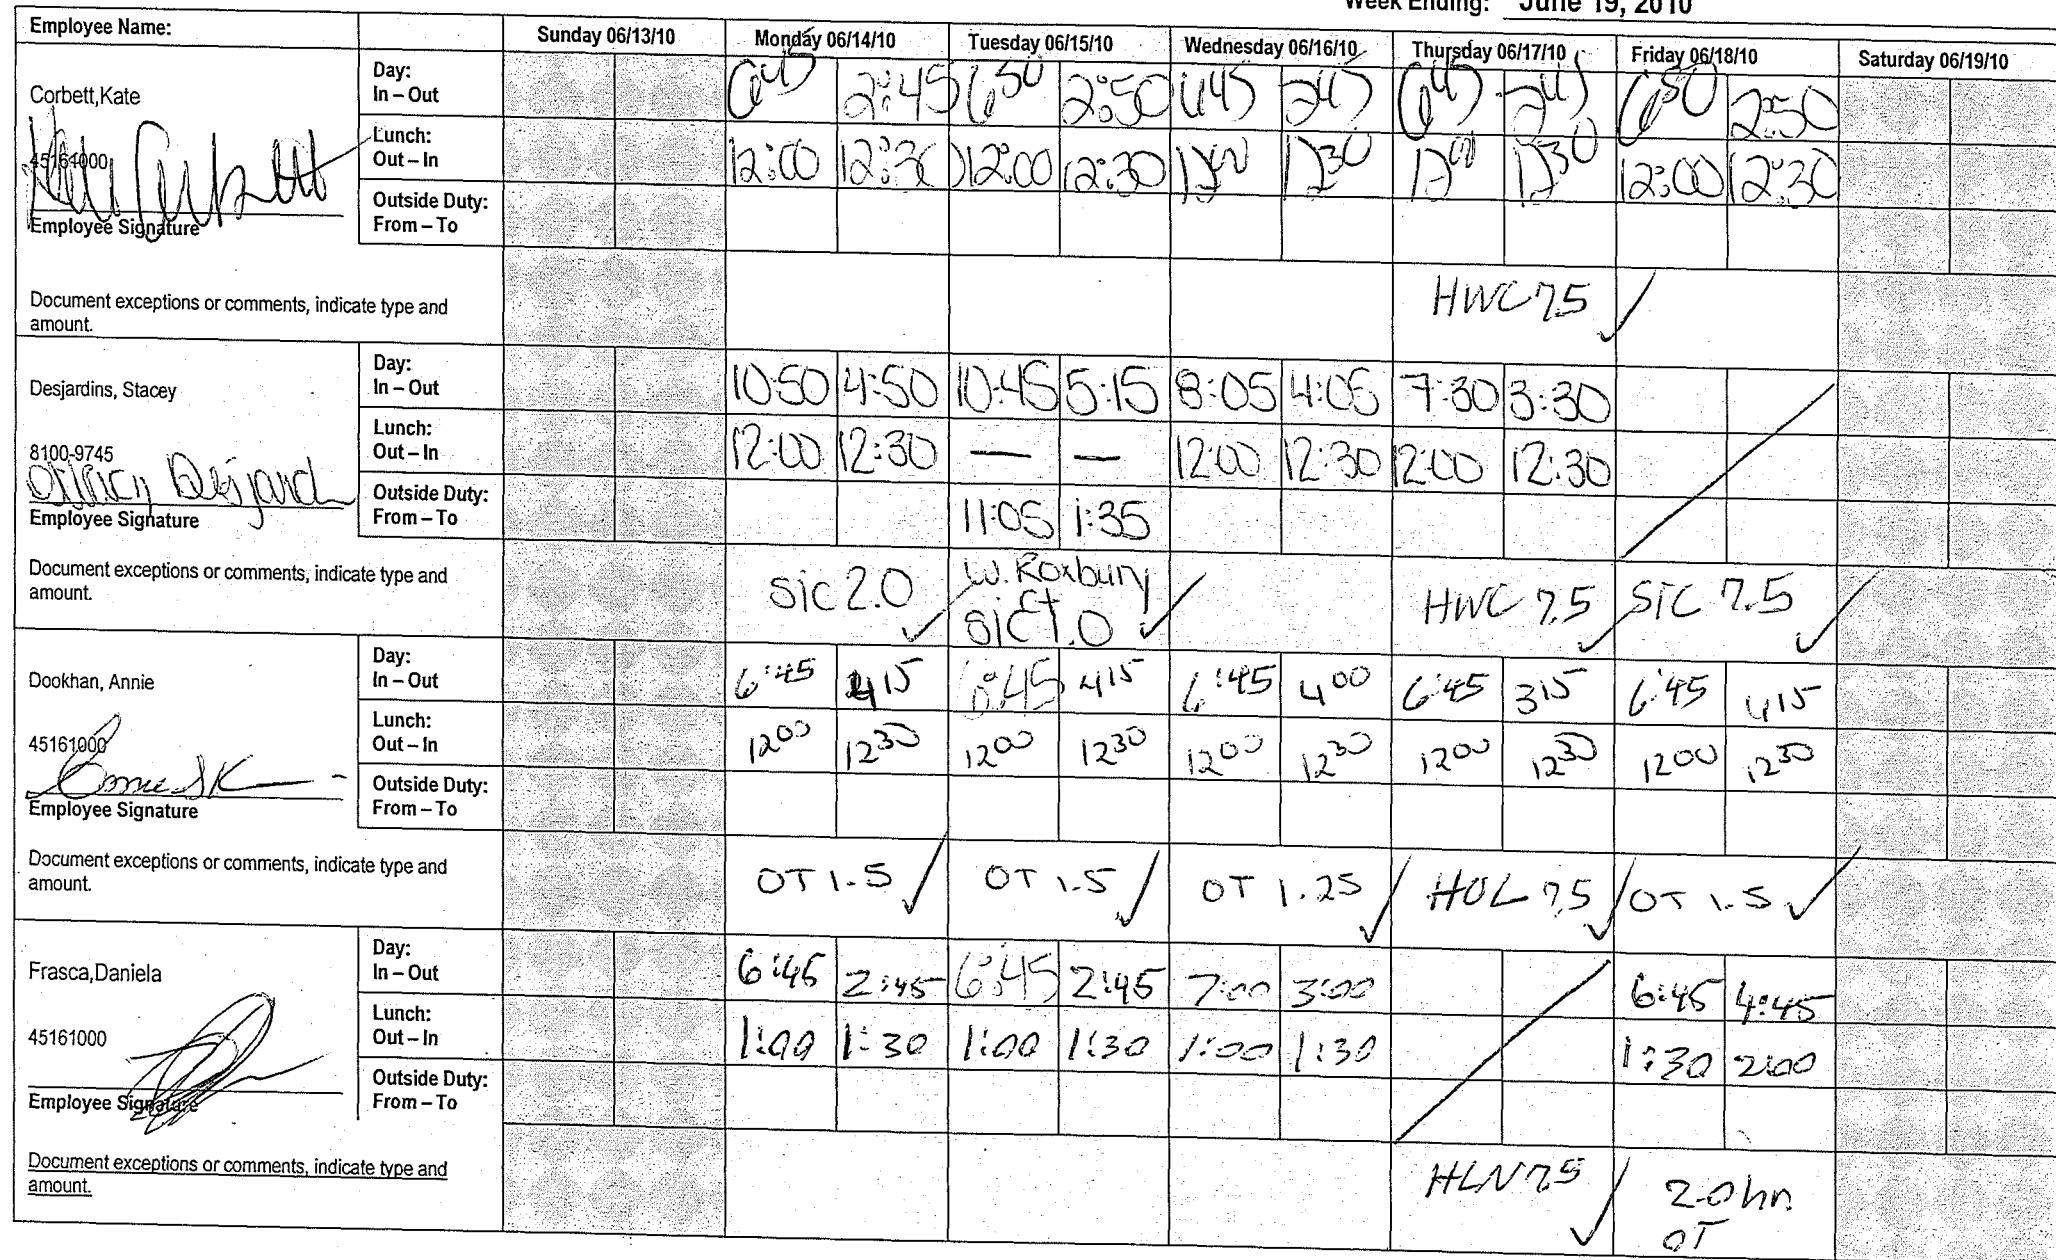 Week Ending: June 19, 2010
Employee Name: Sunday 06/13/10 Monday 06/14/10 Tuesday 06/15/10 Wednesday 06/16/10 Thursday 06/17/10 Friday 06/18/10 Saturday 06/19/10
Corbett,Kate
45161000
Employee Signature
Day:
In – Out 645 2:45 650 2:50 645 245 645 245 650 2:50
Lunch:
Out – In 12:00 12:30 12:00 12:30 1200 1230 1200 1230 12:00 12:30
Outside Duty:
From – To
Document exceptions or comments, indicate type and
amount.
HWC 7.5
Desjardins, Stacey
8100-9745
Employee Signature
Day:
In – Out 10:50 4:50 10:45 5:15 8:05 4:05 7:30 3:30
Lunch:
Out – In 12:00 12:30 — — 12:00 12:30 12:00 12:30
Outside Duty:
From – To 11:05 1:35
Document exceptions or comments, indicate type and
amount.
SIC 2.0 W. Roxbury Ct SIC 1.0 HWC 7.5 SIC 7.5
Dookhan, Annie
45161000
Employee Signature
Day:
In – Out 6:45 415 6:45 415 6:45 400 6:45 315 6:45 415
Lunch:
Out – In 1200 1230 1200 1230 1200 1230 1200 1230 1200 1230
Outside Duty:
From – To
Document exceptions or comments, indicate type and
amount.
OT 1.5 OT 1.5 OT 1.25 HOL 7.5 OT 1.5
Frasca,Daniela
45161000
Employee Signature
Day:
In – Out 6:45 2:45 6:45 2:45 7:00 3:00 6:45 4:45
Lunch:
Out – In 1:00 1:30 1:00 1:30 1:00 1:30 1:30 2:00
Outside Duty:
From – To
Document exceptions or comments, indicate type and
amount.
HLN 7.5 2.0 hr.
OT